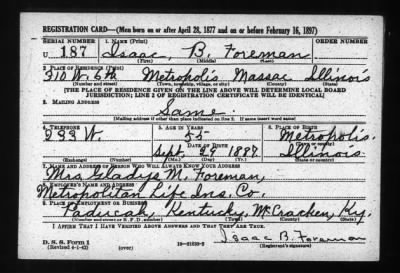 REGISTRATION CARD—(Men born on or after April 28, 1877 and on or before February 16, 1897)
SERIAL NUMBER 1. NAME (Print) ORDER NUMBER
U 187 Isaac, B. Foreman
(First) (Middle) (Last)
2. PLACE OF RESIDENCE (Print)
310 W. 6th Metropolis Massac Illinois
(Number and street) (Town, township, village, or city) (County) (State)
[THE PLACE OF RESIDENCE GIVEN ON THE LINE ABOVE WILL DETERMINE LOCAL BOARD
JURISDICTION; LINE 2 OF REGISTRATION CERTIFICATE WILL BE IDENTICAL]
3. MAILING ADDRESS
Same
(Mailing address if other than place indicated on line 2. If same insert word same)
4. TELEPHONE 5. AGE IN YEARS 6. PLACE OF BIRTH
233 W. 55 Metropolis.
DATE OF BIRTH (Town or county)
Sept. 29 1887. Illinois.
(Exchange) (Number) (Mo.) (Day) (Yr.) (State or country)
7. NAME AND ADDRESS OF PERSON WHO WILL ALWAYS KNOW YOUR ADDRESS
Mrs Gladys M. Foreman.
8. EMPLOYER'S NAME AND ADDRESS
Metropolitan Life Ins. Co.
9. PLACE OF EMPLOYMENT OR BUSINESS
Paducah, Kentucky, McCracken, Ky.
(Number and street or R. F. D. number) (Town) (County) (State)
I AFFIRM THAT I HAVE VERIFIED ABOVE ANSWERS AND THAT THEY ARE TRUE.
D. S. S. Form 1
(Revised 4-1-42) (over) Isaac B. Foreman
(Registrant's signature)